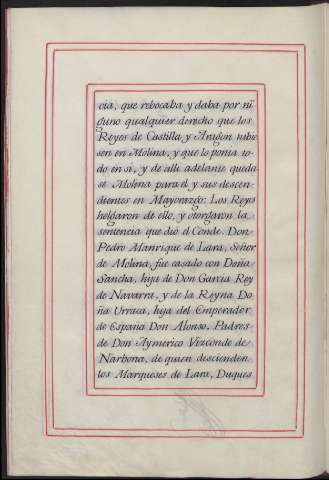 cia, que rebocaba y daba por ni
guno qualquier derecho que los
Reyes de Castilla y Aragon tubie
sen en Molina, y que lo ponia to
do en si, y de alli adelante queda
se Molina para él y sus descen
dientes en Mayorazgo: Los Reyes
helgaron de ello, y otorgaron la
sentencia que dió el Conde. Don
Pedro Manrique de Lara, Señor
de Molina, fue casado con Doña
Sancha, hija de Don Garcia Rey
de Navarra, y de la Reyna Do
ña Urraca, hija del Emperador
de España Don Alonso, Padres
de Don Aymerico Vizconde de
Narbona, de quien descienden
los Marqueses de Lara, Duques